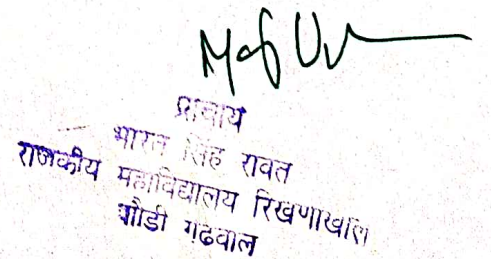 प्राचार्य
भारत सिंह रावत
राजकीय महाविद्यालय रिखणाखाल
पौडी गढवाल